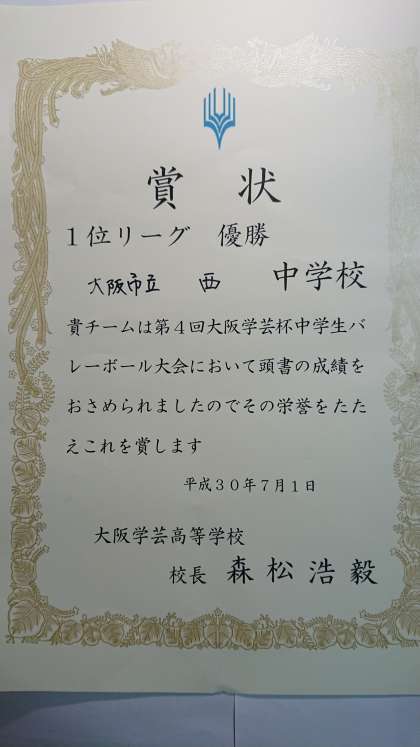 賞状
1位リーグ 優勝
大阪市立 西 中学校
貴チームは第4回大阪学芸杯中学生バ
レーボール大会において頭書の成績を
おさめられましたのでその栄誉をたた
えこれを賞します
平成30年7月1日
大阪学芸高等学校
校長 森松浩毅